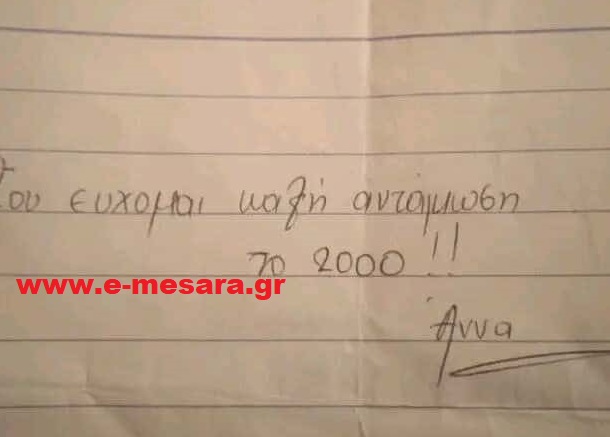 Σου ευχομαι καλή αντάμωση
το 2000!!
www.e-mesara.gr
Άννα